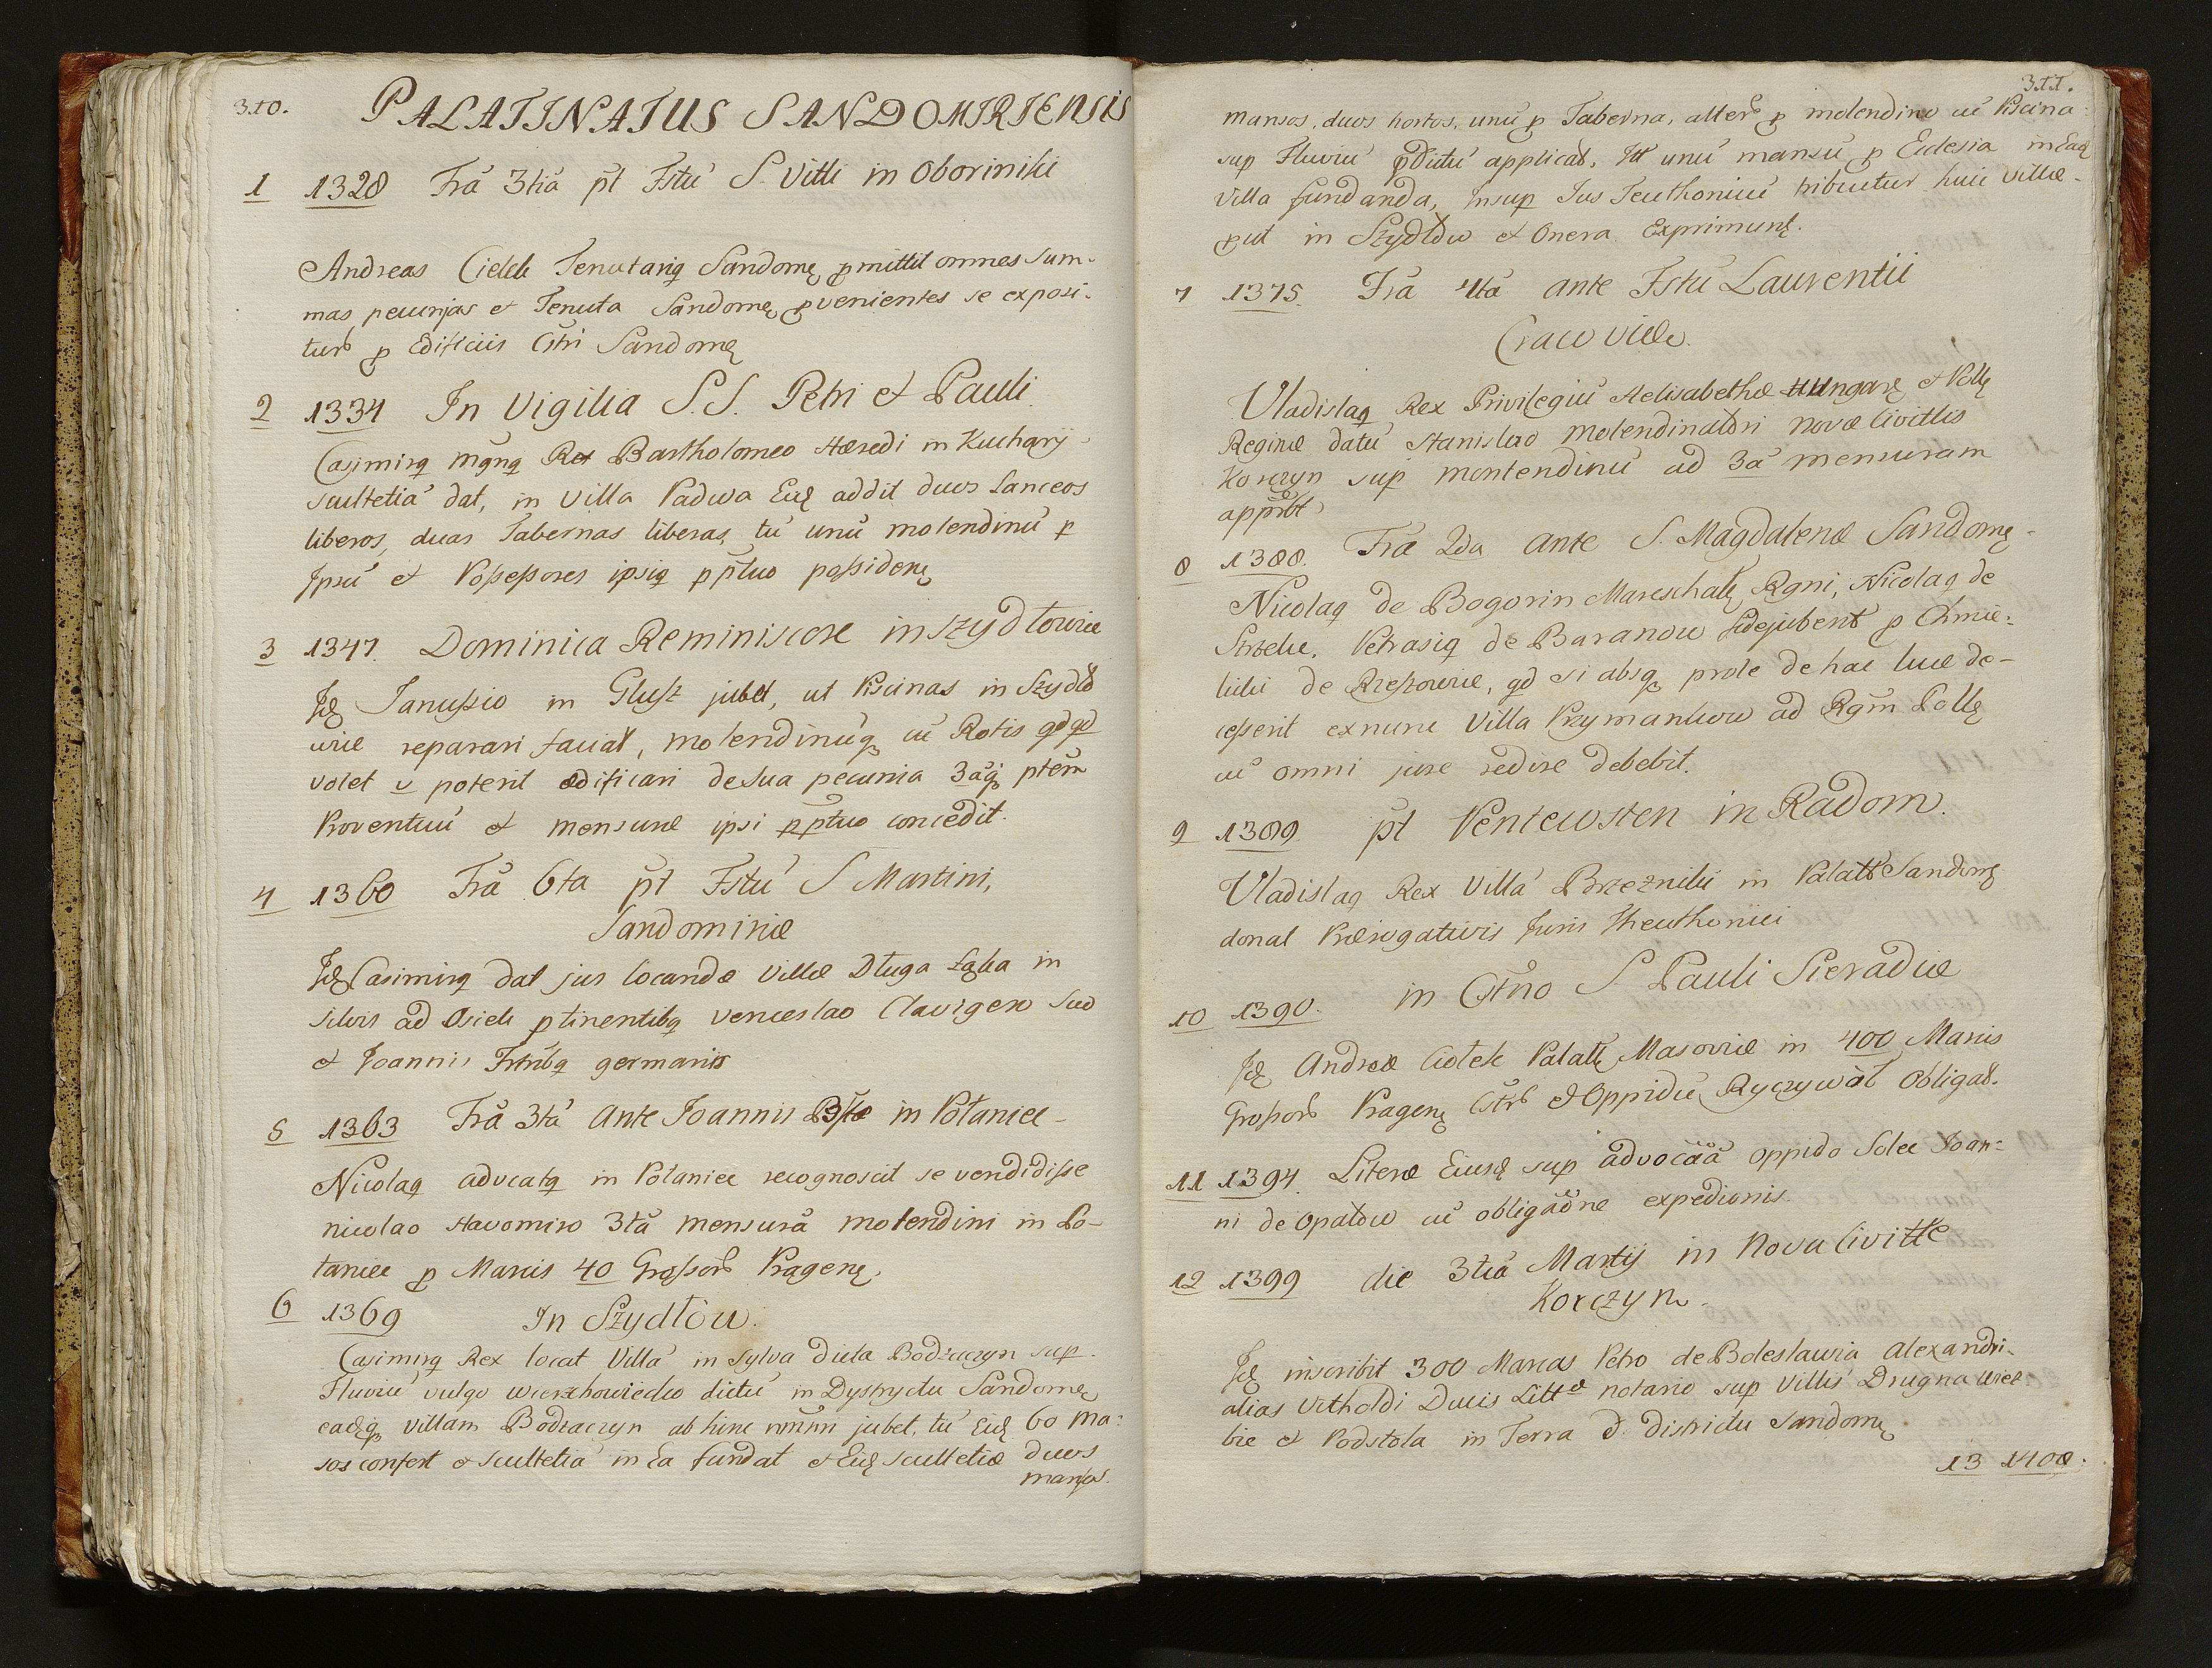 310.
PALATINATUS SANDOMIRIENSIS
1 1328 Fra 3tia pt Fstu S. Viti in Oborniki
Andreas Ciolek Tenutariq Sandomę pmittit omnes sum-
mas pecunjas e Tenuta Sandomę pvenientes se exposi-
turb p Edificiis Cstri Sandomę
2 1334 In Vigilia S.S. Petri et Pauli.
Casimirq mgnq Rex Bartholomeo Hæredi in Kucharÿ
scultetiã dat, in Villa Padwa Eię addit duos Laneos
liberos, duas Tabernas liberas, tũ unũ molendinũ p
Ipsũ et Possessores ipsiq pptuo possidenę
3 1347. Dominica Reminiscere in Szydłowie
Idę Janussio in Glusz jubet, ut Piscinas in Szydło
wie reparari faciat, molendinũq cũ Rotis qdqd
volet v poterit ædificari de sua pecunia 3ãq ptẽm
Proventuũ et mensuræ ipsi pptuo concedit.
4 1360 Fra 6ta pt Fstũ S Martini,
Sandomiriæ
Idę Casimirq dat jus locandæ Villæ Długa Łąka in
silvis ad Osiek ptinentibq Venceslao Clavigero suo
et Joannis Frtribq germanis
5 1363 Fra 3tã ante Joannis Bstæ in Połaniec-
Nicolaq advcatq in Polaniec recognoscit se vendidisse
nicolao Stavomiro 3tã mensurã molendini in Po-
laniec p Marcis 40 Grossorb Pragenę.
6 1369 In Szydłów.
Casimirq Rex locat Villã in sylva dicta Bodzaczyn sup
Fluviũ vulgo Wierzchowiecko dictũ in Dystryctu Sandomę
eadęq villam Bodzaczyn ab hinc nminri jubet, tũ Eidę 60 ma:
sos confert et scultetiã in Ea fundat et Eidę scultetiæ duos
mansos.
311.
mansos, duos hortos, unũ p Taberna, alterb p molendino cũ Piscina:
sup Fluviũ pdictũ applicat. Itt unũ mansũ p Ecclesia in Eadę
Villa fundanda, Insup Jus Teuthonicũ tribuitur huic Villæ-
put in Szydłów et Onera Exprimuntę.
7 1375. Fra 4tã ante Fstũ Laurentii
Cracoviæ.
Vladislaq Rex Privilegiũ Helisabethæ Hungarę et Pollę
Reginæ datũ Stanislao molendinatori novæ Civittis
Korczyn sup montendinũ ad 3ã mensuram
appbt.
8 1388. Fræ 2da ante S. Magdalenæ Sandomę-
Nicolaq de Bogorin Mareschalę Rgni, Nicolaq de
Strzelce, Petrasiq de Baranow fidejubent p Chmie:
licki de Rzeszowie, qd si absq prole de hac luce de-
cesserit exnunc Villa Przymankow ad Rgm Pollę
cũ omni jure redire debebit.
9 1389 pt Pentecosten in Radom.
Vladislaq Rex Villã Brzeznicki in Palattb Sandomę
donat Prærogativis Juris Theuthonici
10 1390. in Cstno S. Pauli Sieradiæ
Idę Andreæ Ciołek Palatę Masoviæ in 400 Marcis
Grossorb Pragenę Cstrb et Oppidũ Ryczywół Obligat.
11 1394. Literæ Eiusdę sup advocãã oppido Solec Joan-
ni de Opatow cũ obligãõne expedionis.
12 1399 die 3tiã Martij in Nova Civitte
Korczyn.
Idę inscribit 300 Marcas Petro de Boleslawia Alexandri-
alias Vitholdi Ducis Littæ notario sup Villis Drugna Wiel
bie et Podstola in Terra & districtu Sandomę
13 1400.